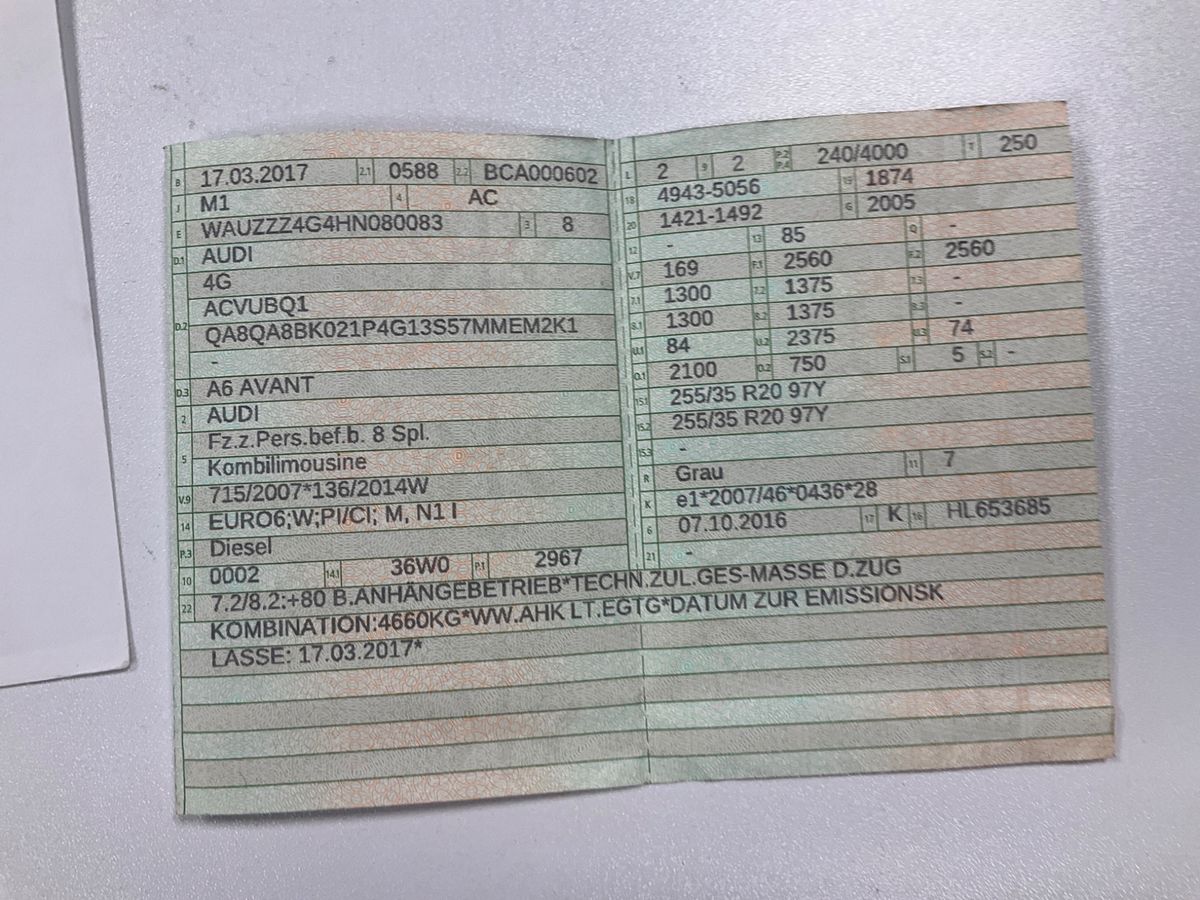 B 17.03.2017 2.1 0588 2.2 BCA000602
J M1 4 AC
E WAUZZZ4G4HN080083 3 8
D.1 AUDI
4G
ACVUBQ1
D.2 QA8QA8BK021P4G13S57MMEM2K1
-
D.3 A6 AVANT
2 AUDI
Fz.z.Pers.bef.b. 8 Spl.
5 Kombilimousine
V.9 715/2007*136/2014W
14 EURO6;W;PI/CI; M, N1 I
P.3 Diesel
10 0002 14.1 36W0 P.1 2967
L 2 9 2 P.2 P.4 240/4000 T 250
18 4943-5056 19 1874
20 1421-1492 G 2005
12 - 13 85 Q -
V.7 169 F.1 2560 F.2 2560
7.1 1300 7.2 1375 7.3 -
8.1 1300 8.2 1375 8.3 -
U.1 84 U.2 2375 U.3 74
O.1 2100 O.2 750 S.1 5 S.2 -
15.1 255/35 R20 97Y
15.2 255/35 R20 97Y
15.3 -
R Grau 11 7
K e1*2007/46*0436*28
6 07.10.2016 17 K 16 HL653685
21 -
22 7.2/8.2:+80 B.ANHÄNGEBETRIEB*TECHN.ZUL.GES-MASSE D.ZUG
KOMBINATION:4660KG*WW.AHK LT.EGTG*DATUM ZUR EMISSIONSK
LASSE: 17.03.2017*